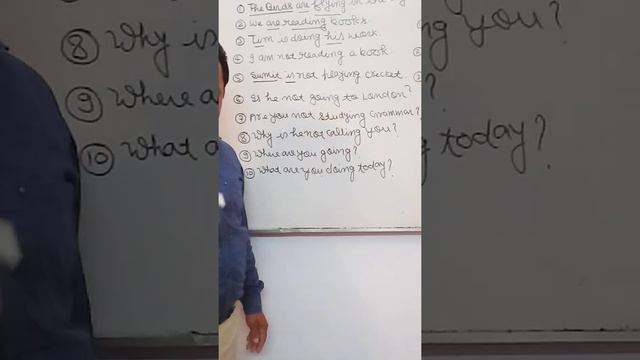 ① The Birds are flying in the
② We are reading books.
③ Tim is doing his work.
④ I am not reading a book.
⑤ Sumit is not playing cricket.
⑥ Is he not going to London?
⑦ Are you not studying Grammar?
⑧ Why is he not calling you?
⑨ Where are you going?
⑩ What are you doing today?
⑧ Why is
⑨ Where a
⑩ What a
ng you?
g today?